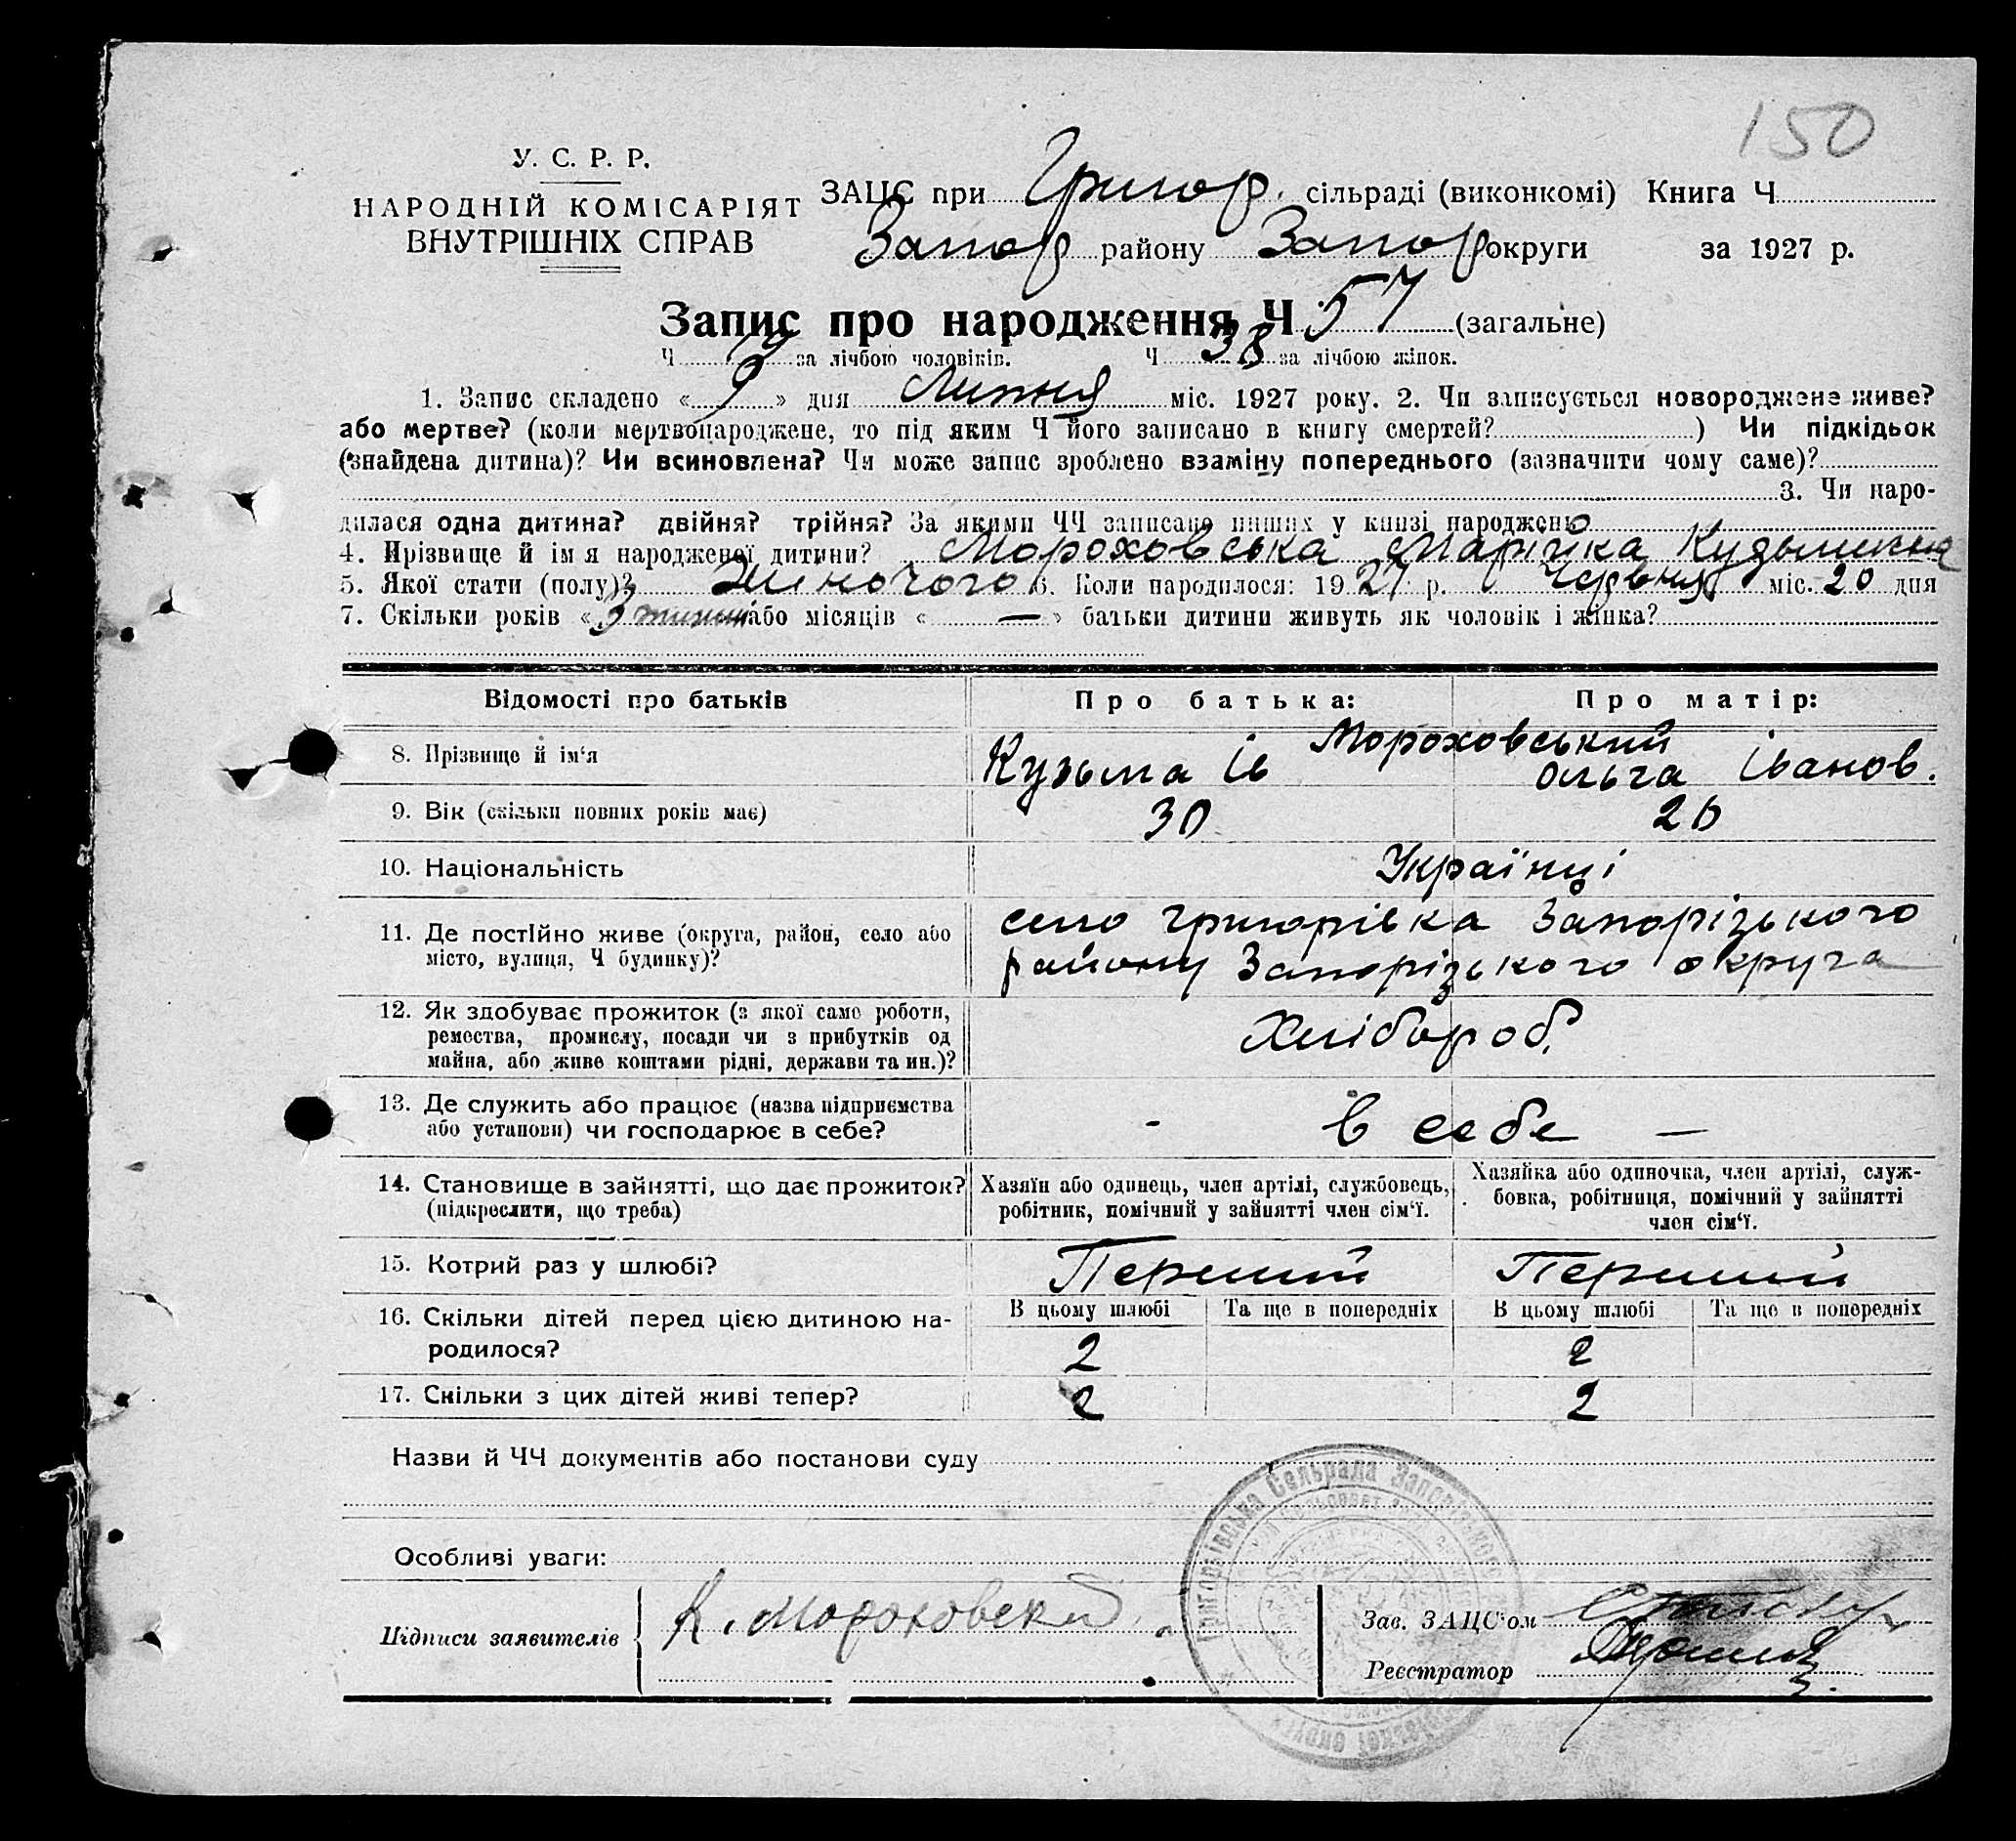 150
У. С. Р. Р.
НАРОДНІЙ КОМІСАРІЯТ
ВНУТРІШНІХ СПРАВ
ЗАЦС при Григор. сільраді (виконкомі) Книга Ч
Запор району Запор округи за 1927 р.
Запис про народження Ч 57 (загальне)
Ч 19 за лічбою чоловіків. Ч 38 за лічбою жінок.
1. Запис складено « 9 » дня Липня міс. 1927 року. 2. Чи записується новороджене живе?
або мертве? (коли мертвонароджене, то під яким Ч його записано в книгу смертей? ) Чи підкідьок
(знайдена дитина)? Чи всиновлена? Чи може запис зроблено взаміну попереднього (зазначити чому саме)?
3. Чи наро-
дилася одна дитина? двійня? трійня? За якими ЧЧ записано инших у книзі народжень
4. Прізвище й ім я народженої дитини? Мороховська Марійка Кузьминна
5. Якої стати (полу)? Жіночого 6. Коли народилося: 1927 р. Червня міс. 20 дня
7. Скільки років « 3 або місяців « — » батьки дитини живуть як чоловік і жінка?
Відомості про батьків Про батька: Про матір:
Мороховський
8. Прізвище й ім‘я Кузьма Ів Ольга Іванов.
9. Вік (скільки повних років має) 30 20
10. Національність Українці
11. Де постійно живе (округа, район, село або місто, вулиця, Ч будинку)? село Григорівка Запорізького
району Запорізького округа
12. Як здобуває прожиток (з якої саме роботи,
ремества, промислу, посади чи з прибутків од
майна, або живе коштами рідні, держави та ин.)? Хлібороб.
13. Де служить або працює (назва підприємства
або установи) чи господарює в себе? - в себе —
14. Становище в зайнятті, що дає прожиток?
(підкреслити, що треба)
Хазяїн або одинець, член артілі, службовець,
робітник, помічний у зайнятті член сім‘ї.
Хазяйка або одиночка, член артілі, служ-
бовка, робітниця, помічний у зайнятті
член сім‘ї.
15. Котрий раз у шлюбі? Перший Перший
В цьому шлюбі Та ще в попередніх В цьому шлюбі Та ще в попередніх
16. Скільки дітей перед цією дитиною на-
родилося? 2 2
17. Скільки з цих дітей живі тепер? 2 2
Назви й ЧЧ документів або постанови суду
Григорівська Сельрада Запорізького
Особливі уваги:
Підписи заявителів К. Мороховский
Зав. ЗАЦС‘ом
Реєстратор